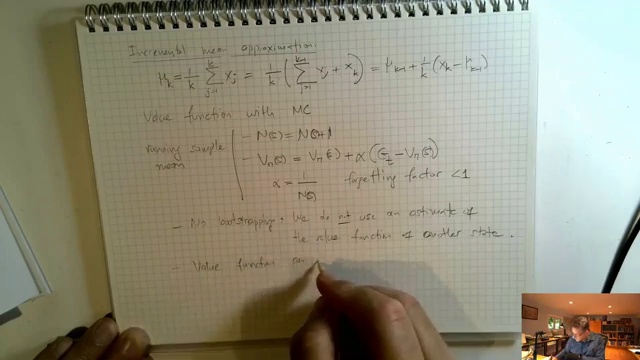 Incremental mean approximation:
μ_k = 1/k Σ_{j=1}^{k} x_j = 1/k ( Σ_{j=1}^{k-1} x_j + x_k ) = μ_{k-1} + 1/k (x_k − μ_{k-1})
Value function with MC
running sample mean
− N(s) = N(s)+1
− V_π(s) = V_π(s) + α (G_t − V_π(s))
α = 1/N(s) forgetting factor <1
− No bootstrapping: We do not use an estimate of
the value function of another state.
− Value function